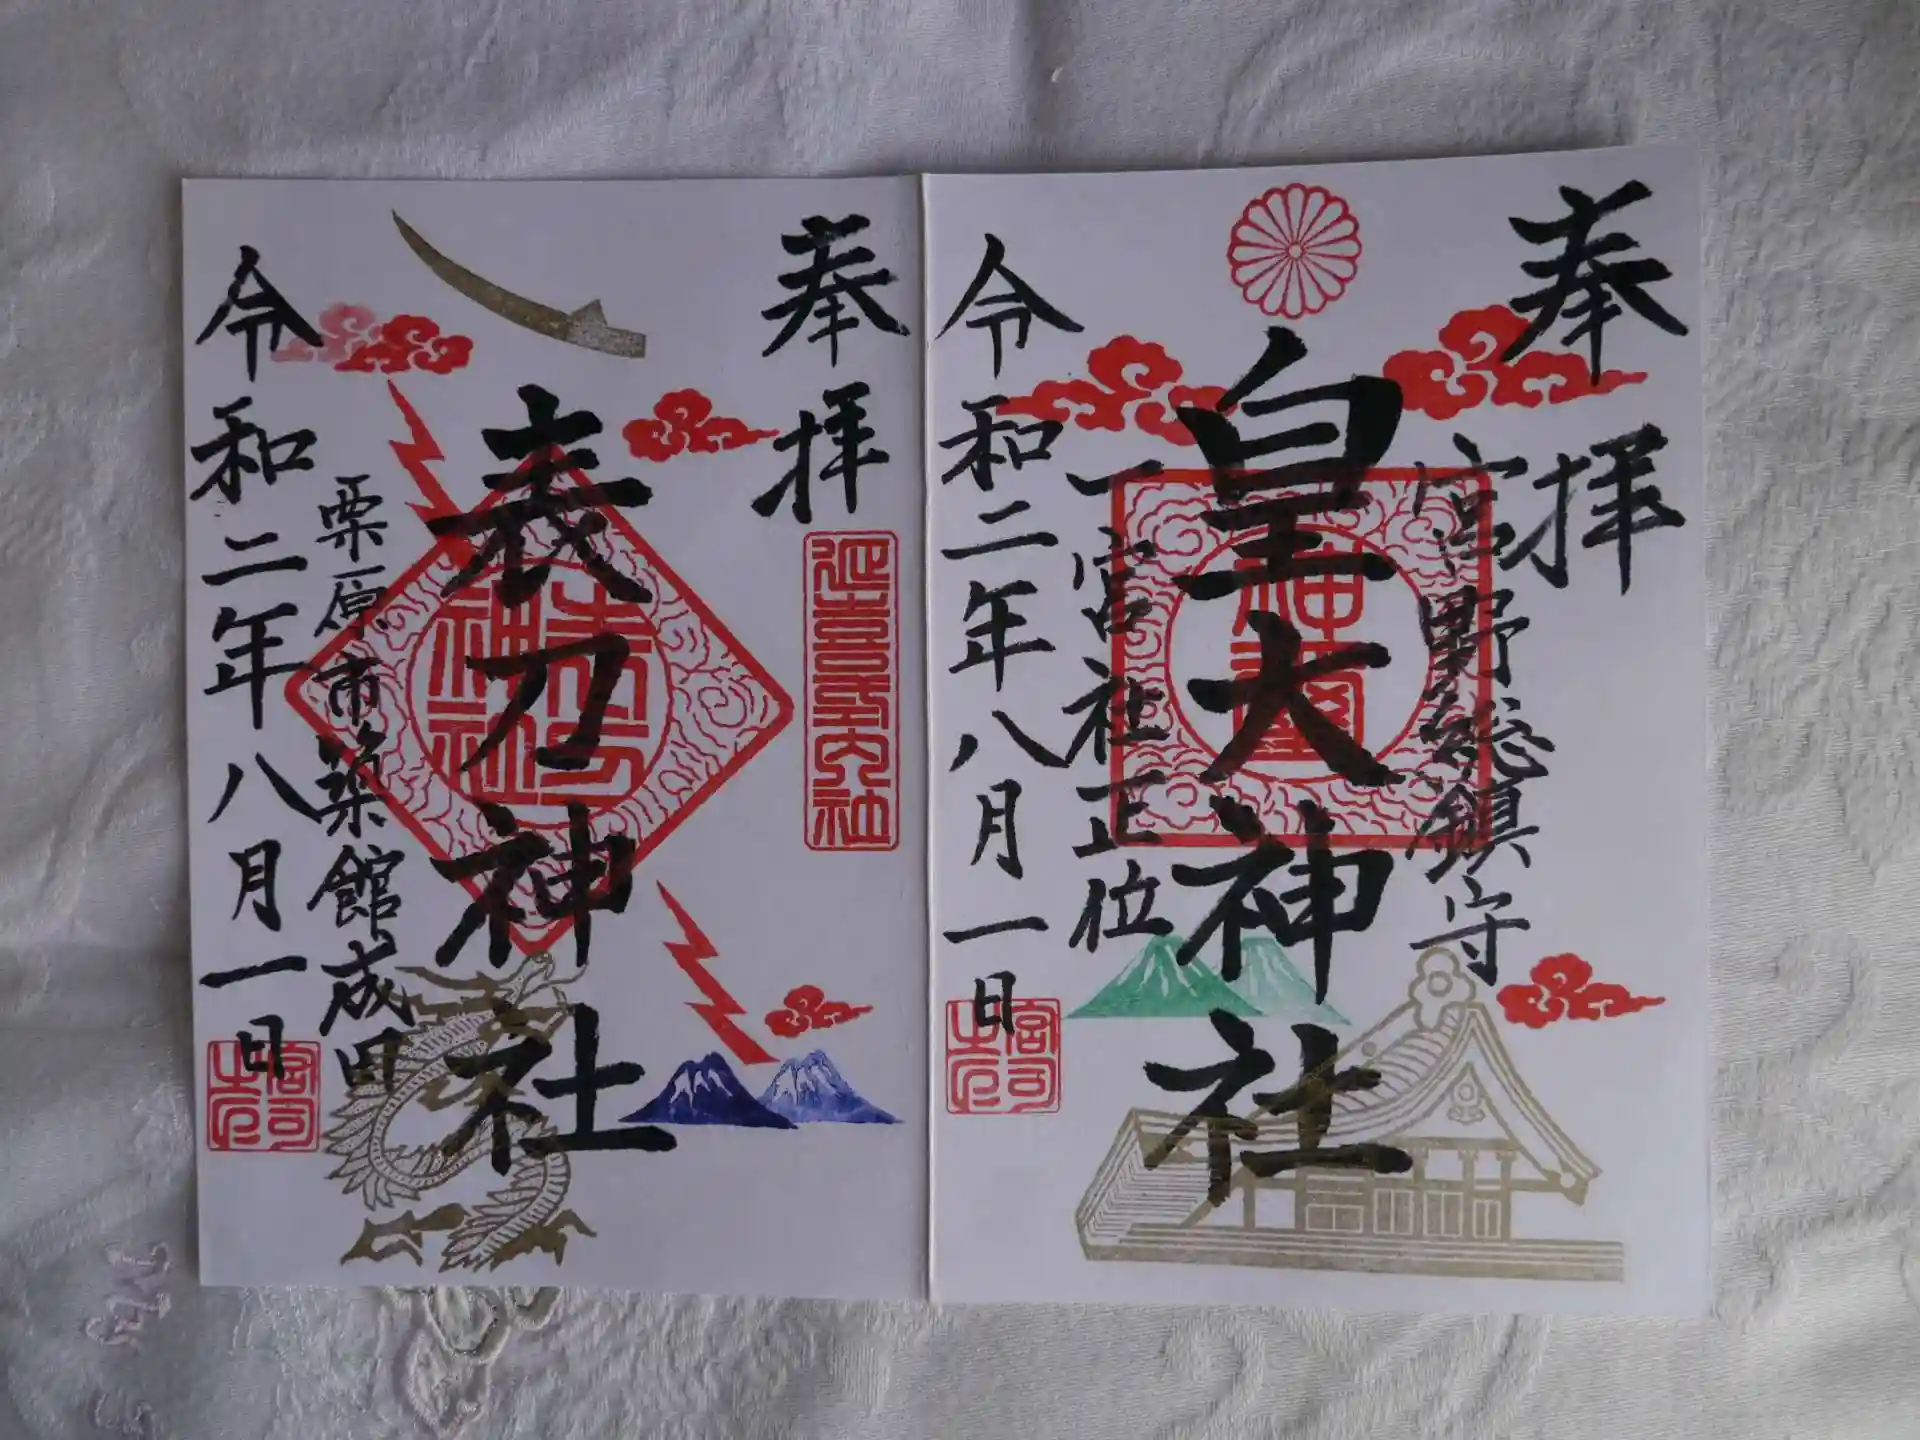 奉拝
宮野総鎮守
皇大神社
一宮社正位
令和二年八月一日
宮司之印
奉拝
延喜式内社
表刀神社
栗原市築館成田
令和二年八月一日
宮司之印